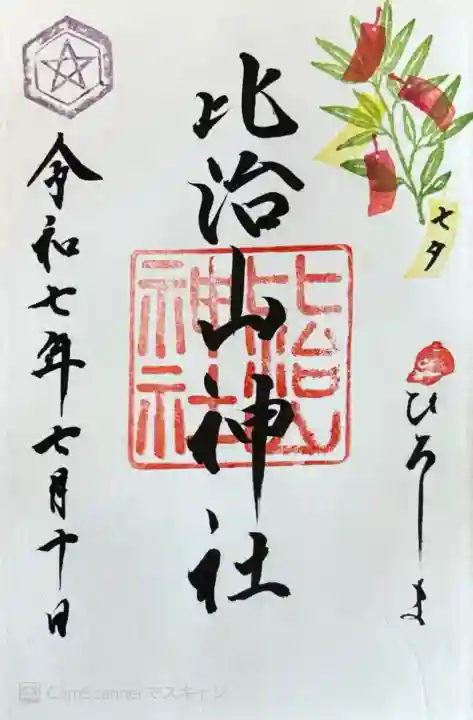 七夕
ひろしま
比治山神社
比治山神社
令和七年七月十日
CamScannerでスキャン